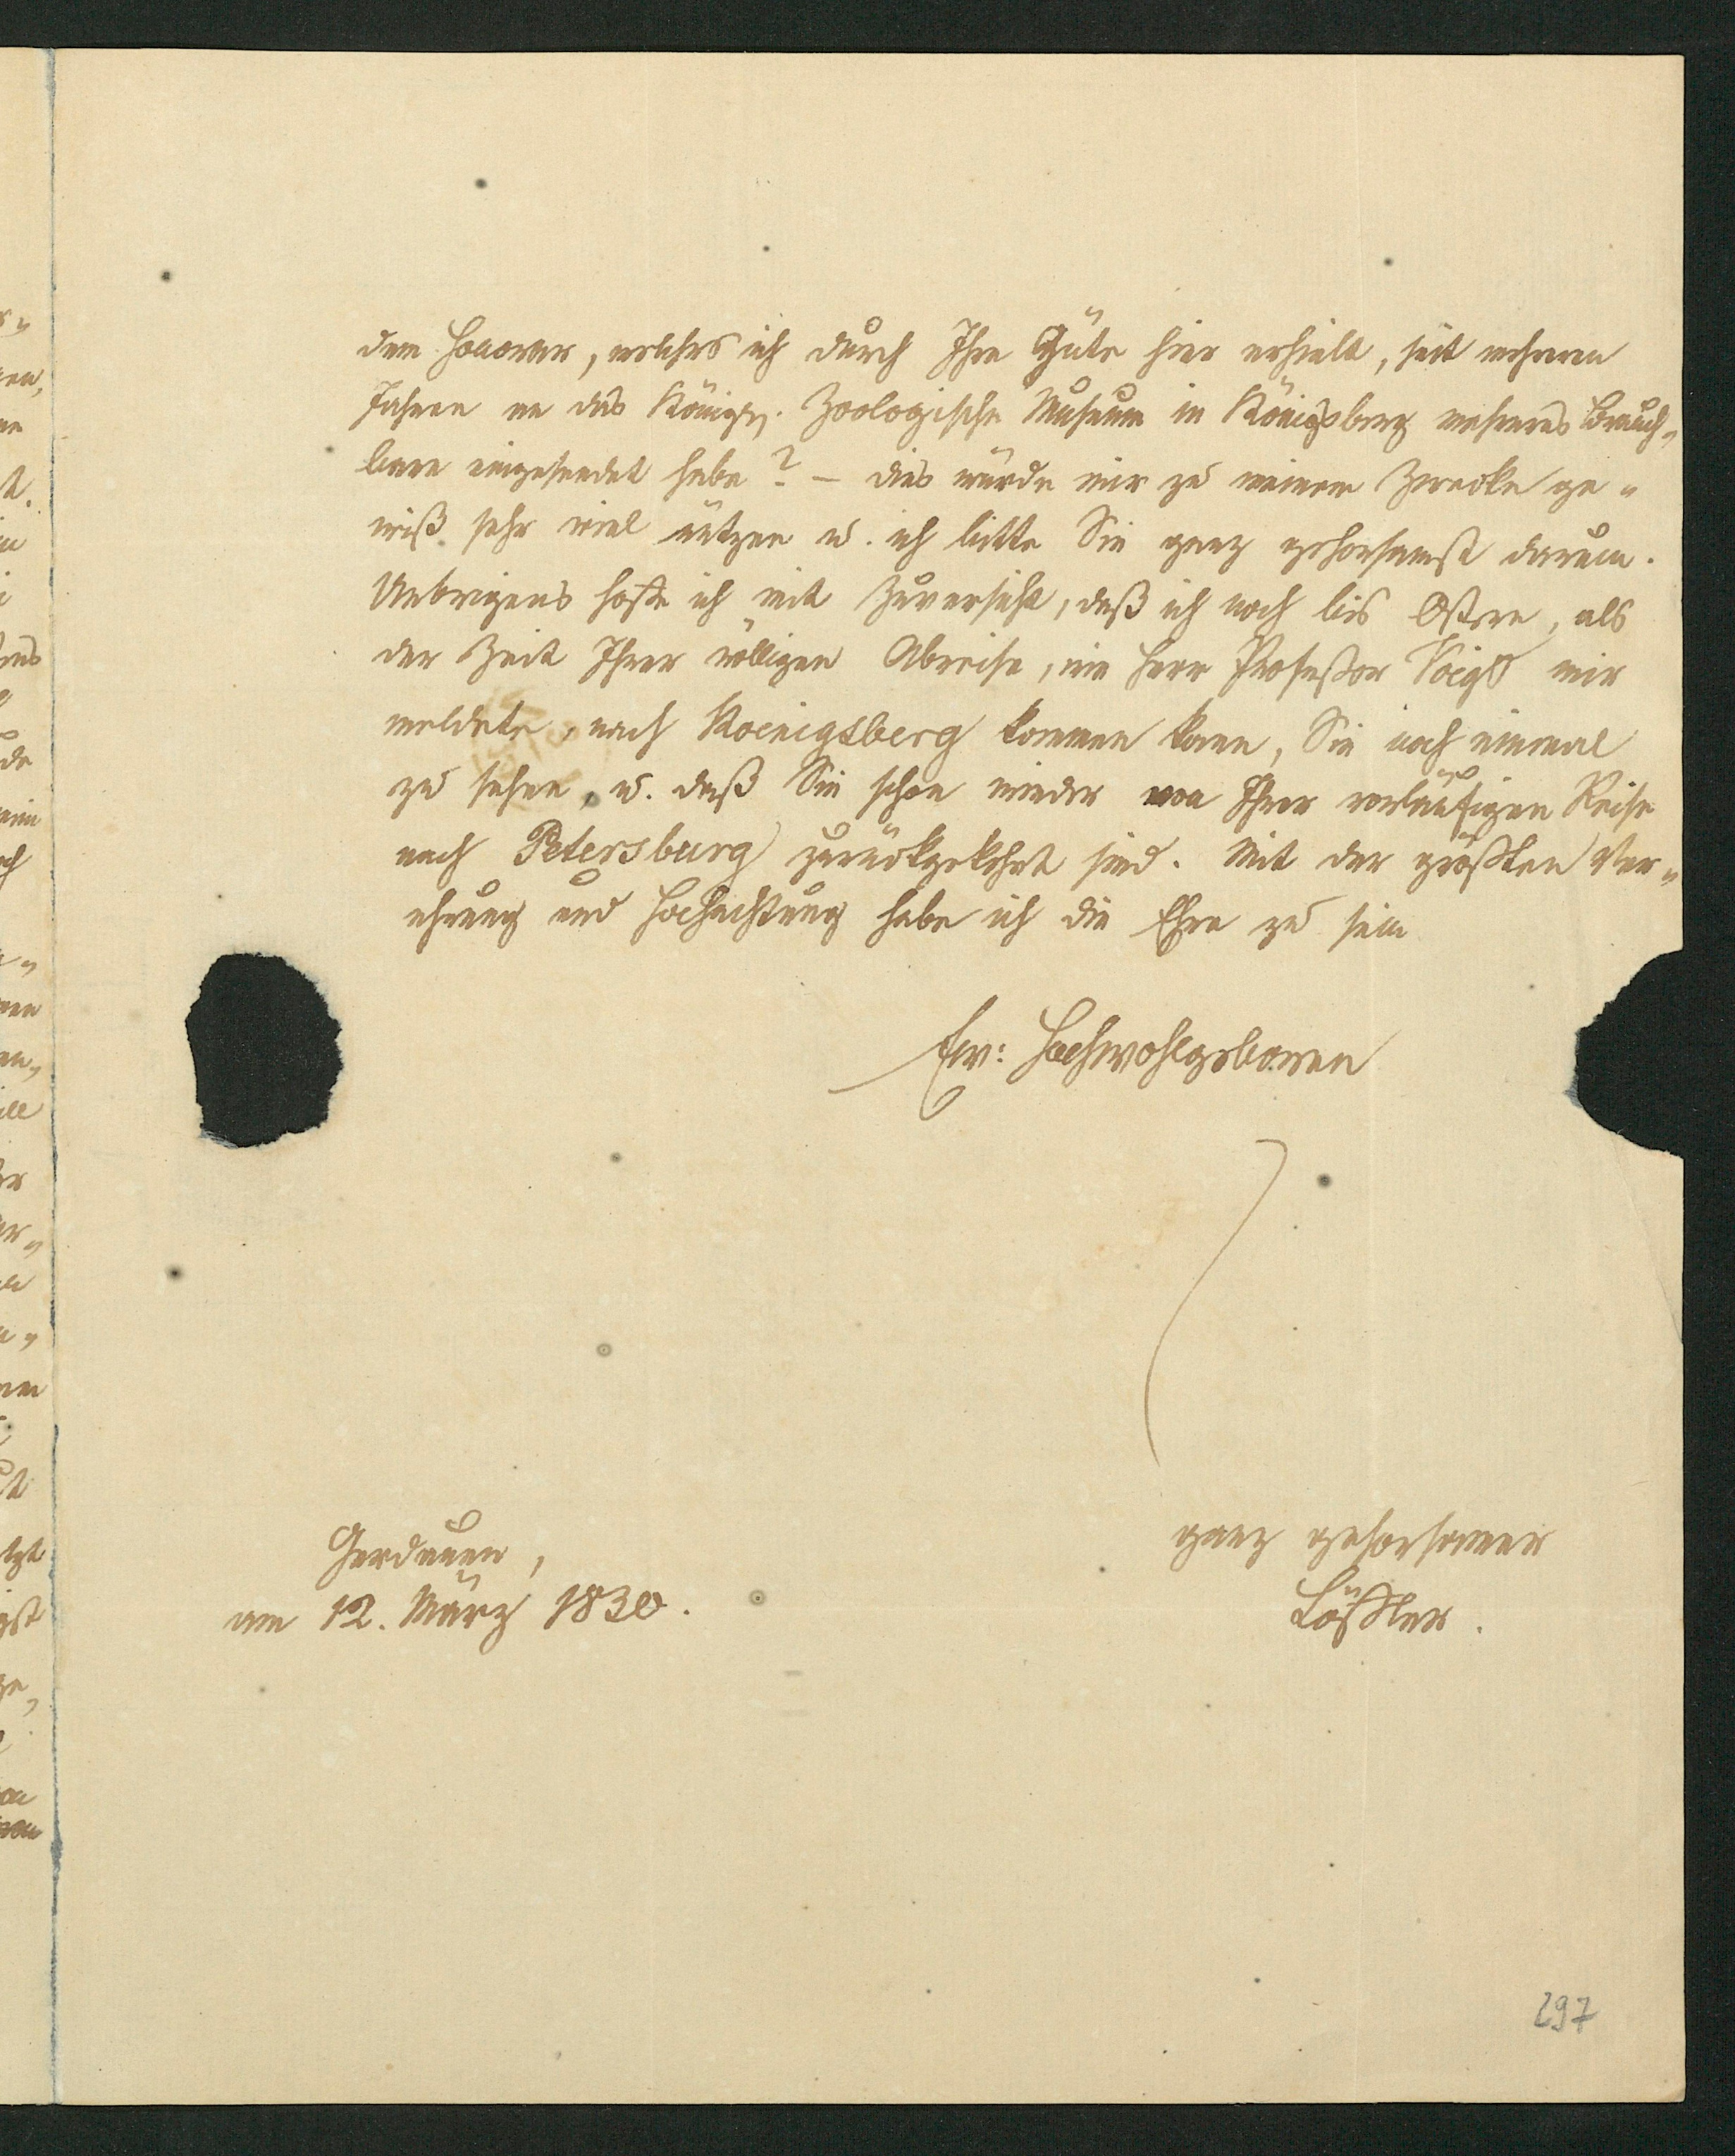 dem Honorar, welches ich durch Ihre Güte hier erhielt, seit mehreren
Jahren an das Königl. Zoologische Museum in Königsberg mehreres Brauch„
bare eingesendet habe? – dies würde mir zu meinem Zwecke ge„
wiß sehr viel nützen u. ich bitte Sie ganz gehorsamst darum.
Uebrigens hoffe ich mit Zuversicht, daß ich noch bis Ostern, als
der Zeit Ihrer völligen Abreise, wie Herr Profeßor Voigt mir
meldete, nach Koenigsberg kommen kann, Sie noch einmal
zu sehen, u. daß Sie schon wieder von Ihrer vorläufigen Reise
nach Petersburg zurückgekehrt sind. Mit der größten Ver„
ehrung und Hochachtung habe ich die Ehre zu sein
Ew: Hochwohlgeboren
ganz gehorsamer
Löffler.
Gerdauen,
am 12. März 1830.
297